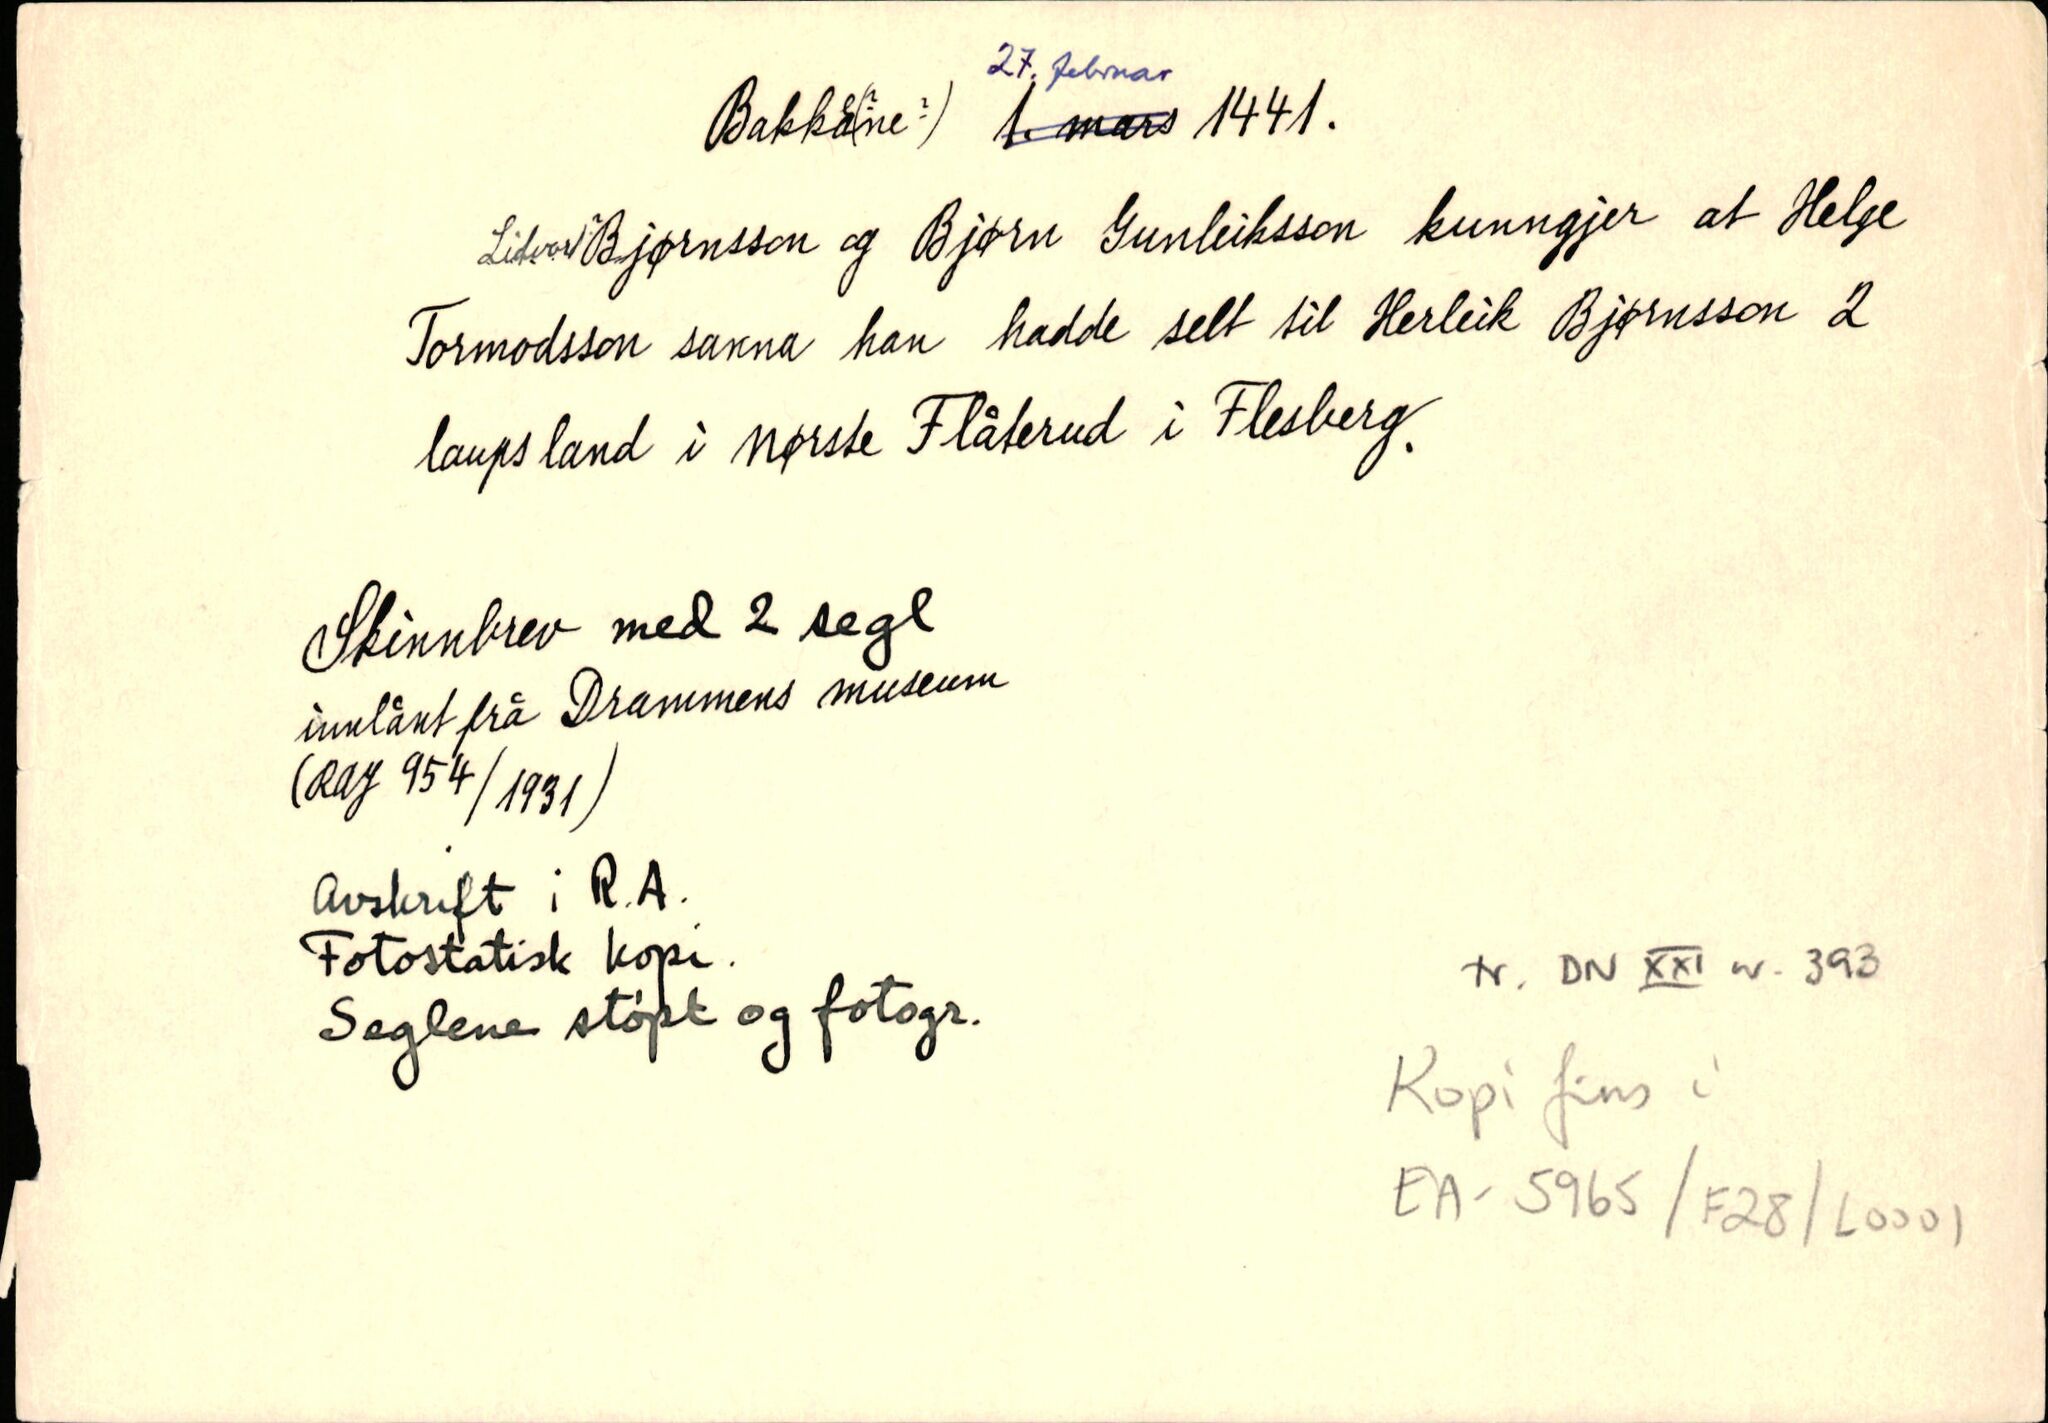 27. februar
Bakkå(ne?) 1. mars 1441.
Litvar? Bjørnsson og Bjørn Gunleiksson kunngjer at Helge
Tormodsson sanna han hadde selt til Herleik Bjørnsson 2
laupsland i Nørste Flåterud i Flesberg.
Skinnbrev med 2 segl
innlånt frå Drammens museum
(RAJ 954/1931)
Avskrift i R.A.
Fotostatisk kopi.
Seglene støpt og fotogr.
tr. DN XXI nr. 393
Kopi fins i
EA-5965/F28/L0001